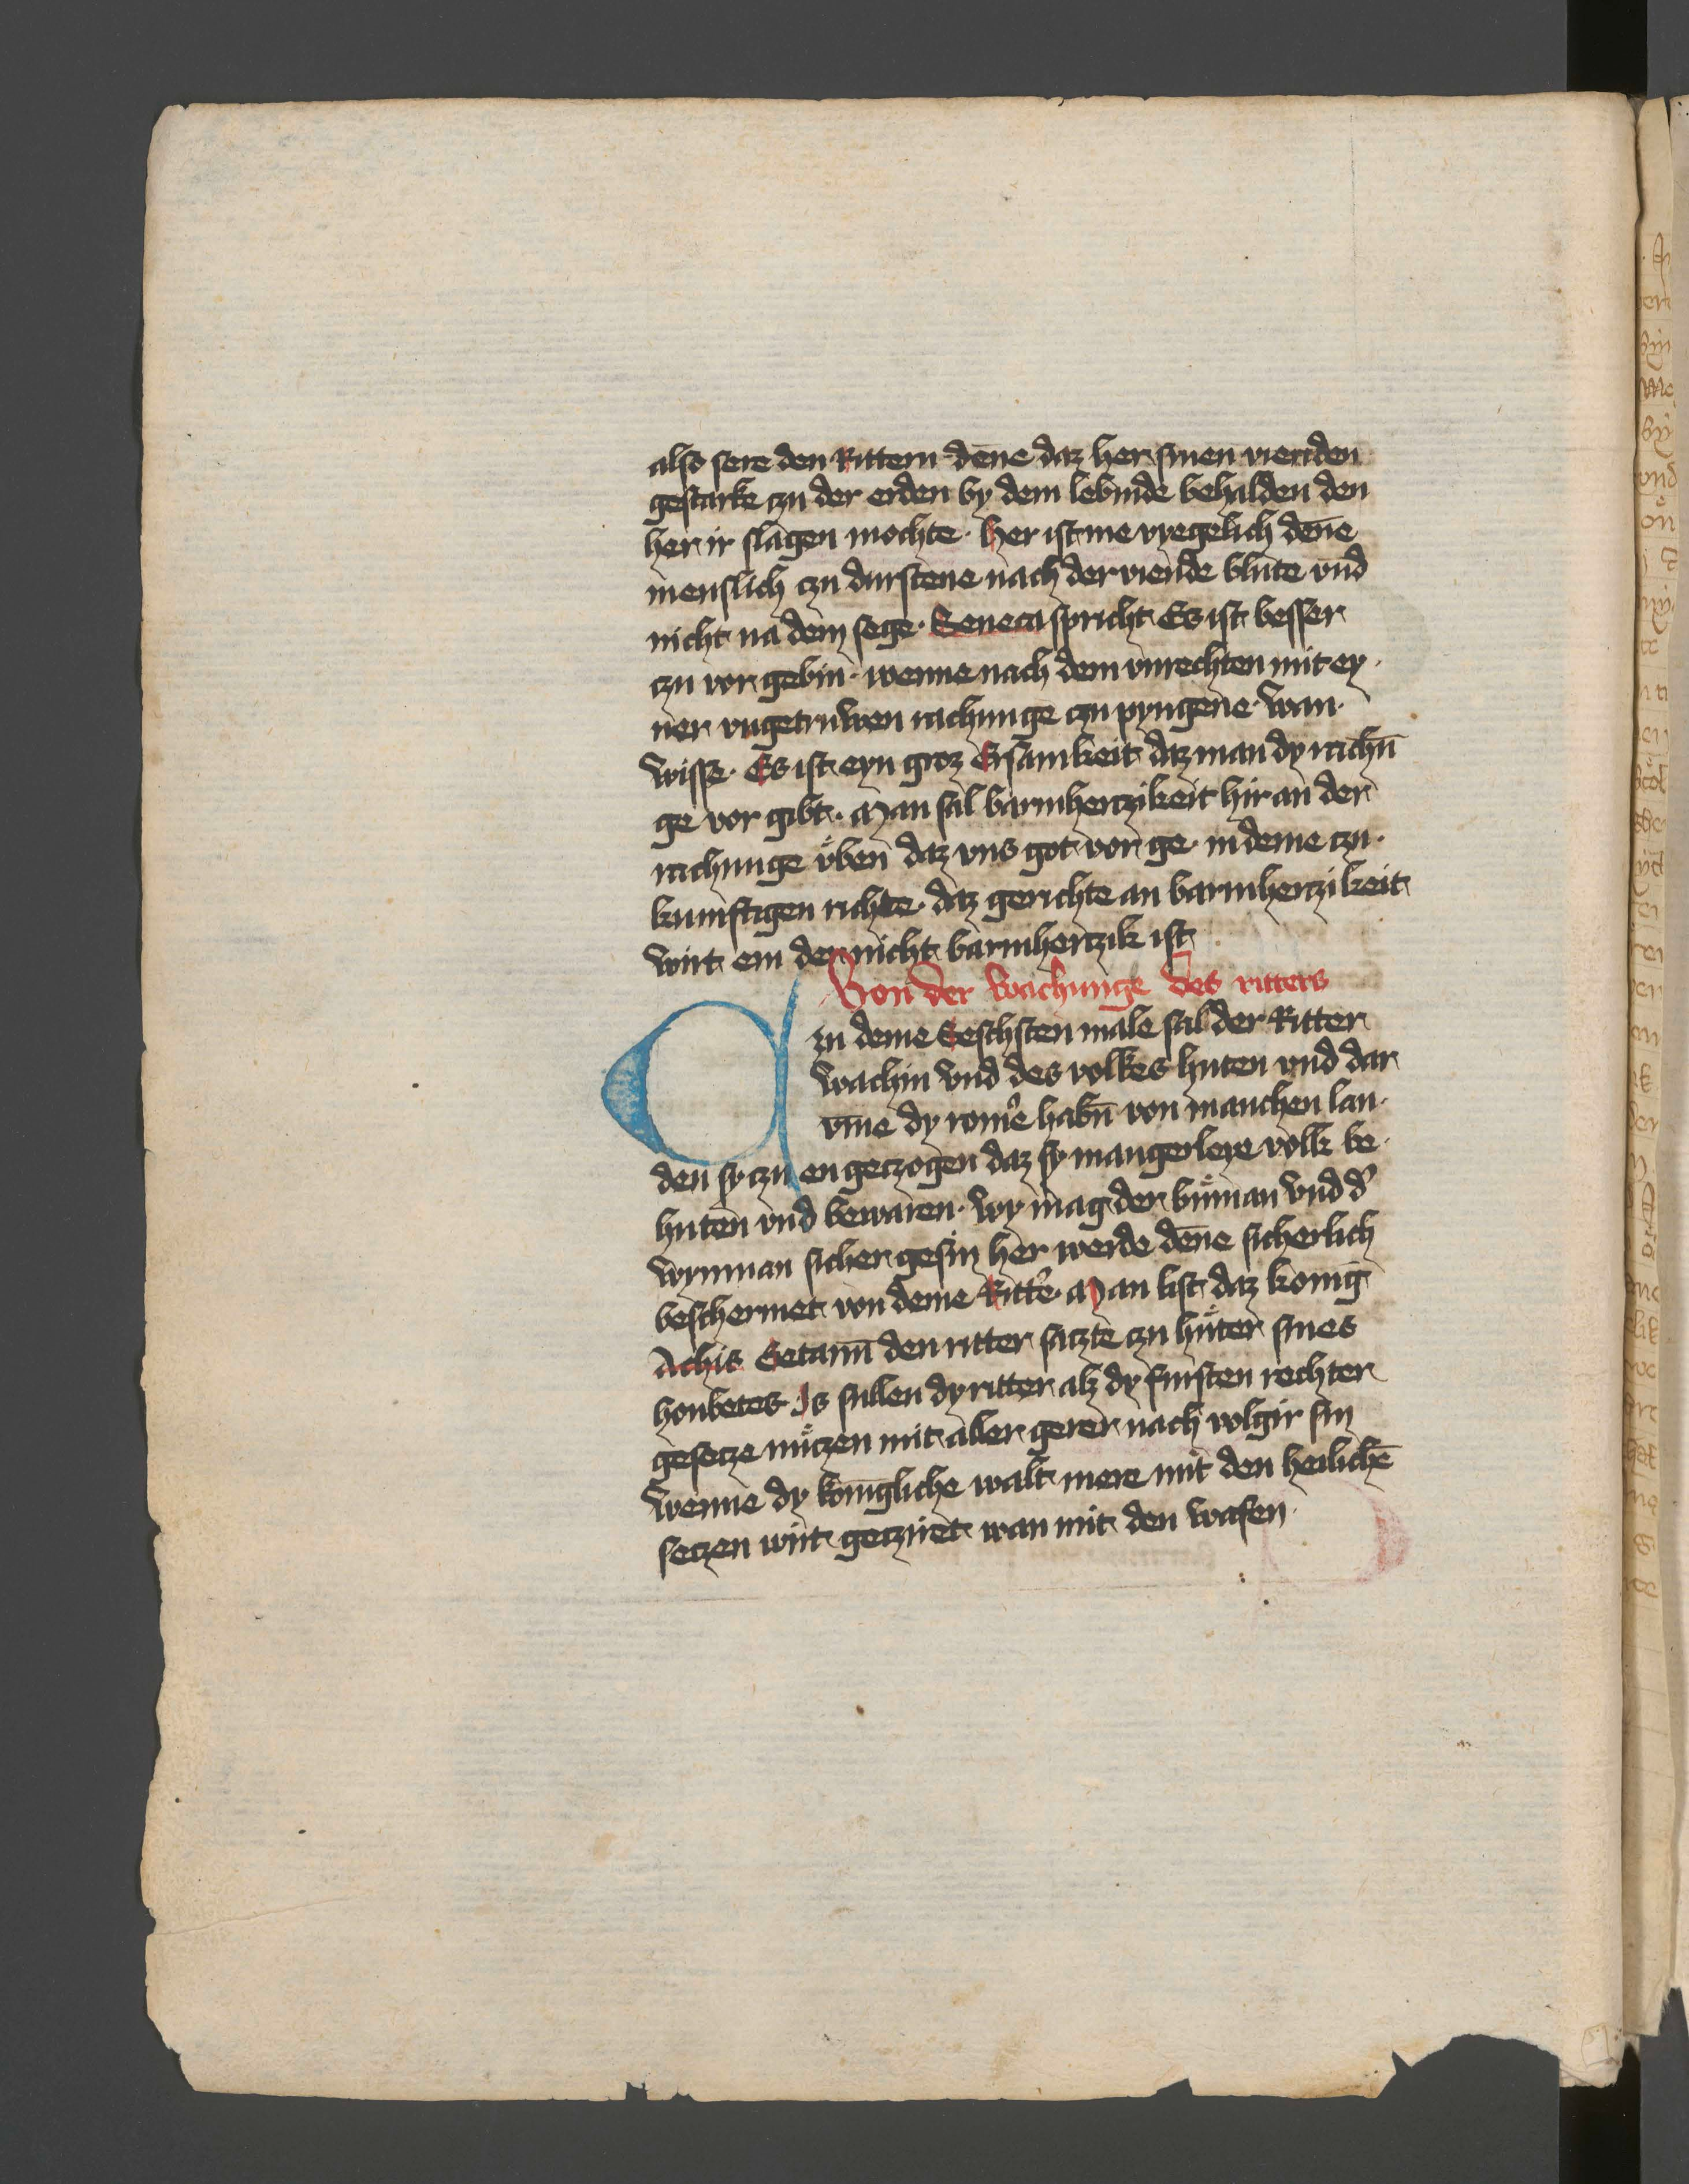 also sere den Rittern dēne daz her sinen vienden
gestarke czu der erden by dem lebinde behalden den
her ir slagen mochte · her ist me vyegelich dēne
menslich czu durstene nach der viende blute vnd
nicht na dem sege · Seneca spricht Es ist besser
czu vor gebin · wenne nach dem vnrechten mit ey ·
ner vngetruwen rachunge czu pyngene · wan ·
wisse · Es ist eyn groz Ersamkeit daz man dy rachū
ge vor gibt · Man sal barmherczikeit hir an der
rachunge vͦben daz vns got vor ge · in deme czu ·
kunftigen richte · daz gerichte an barmherczikeit
wirt em der nicht barmherczik ist
Von der wachunge des ritters
in deme Seschsten male sal der Ritter
wachin vnd des volkes huten vnd dar
vme dy romͤe habn̄ von manchen lan ·
den sy czu en geczogen daz sy mangerleye volk be ·
huten vnd bewaren · wy mag der buͦman vnd dͤ
wynman sicher gesin her werde dēne sicherlich
beschermet von deme Rittͤe · Man list daz konig
Achis Setauū den ritter saczte czu huͦter sines
houbetes · Is sullen dy ritter alz dy fursten rechter
gesecze nuͦczen mit aller gerer nach volgir sin
wenne dy konīgliche walt mere mit den heilichē
seczen wirt gecziret wan mit den wafen ·